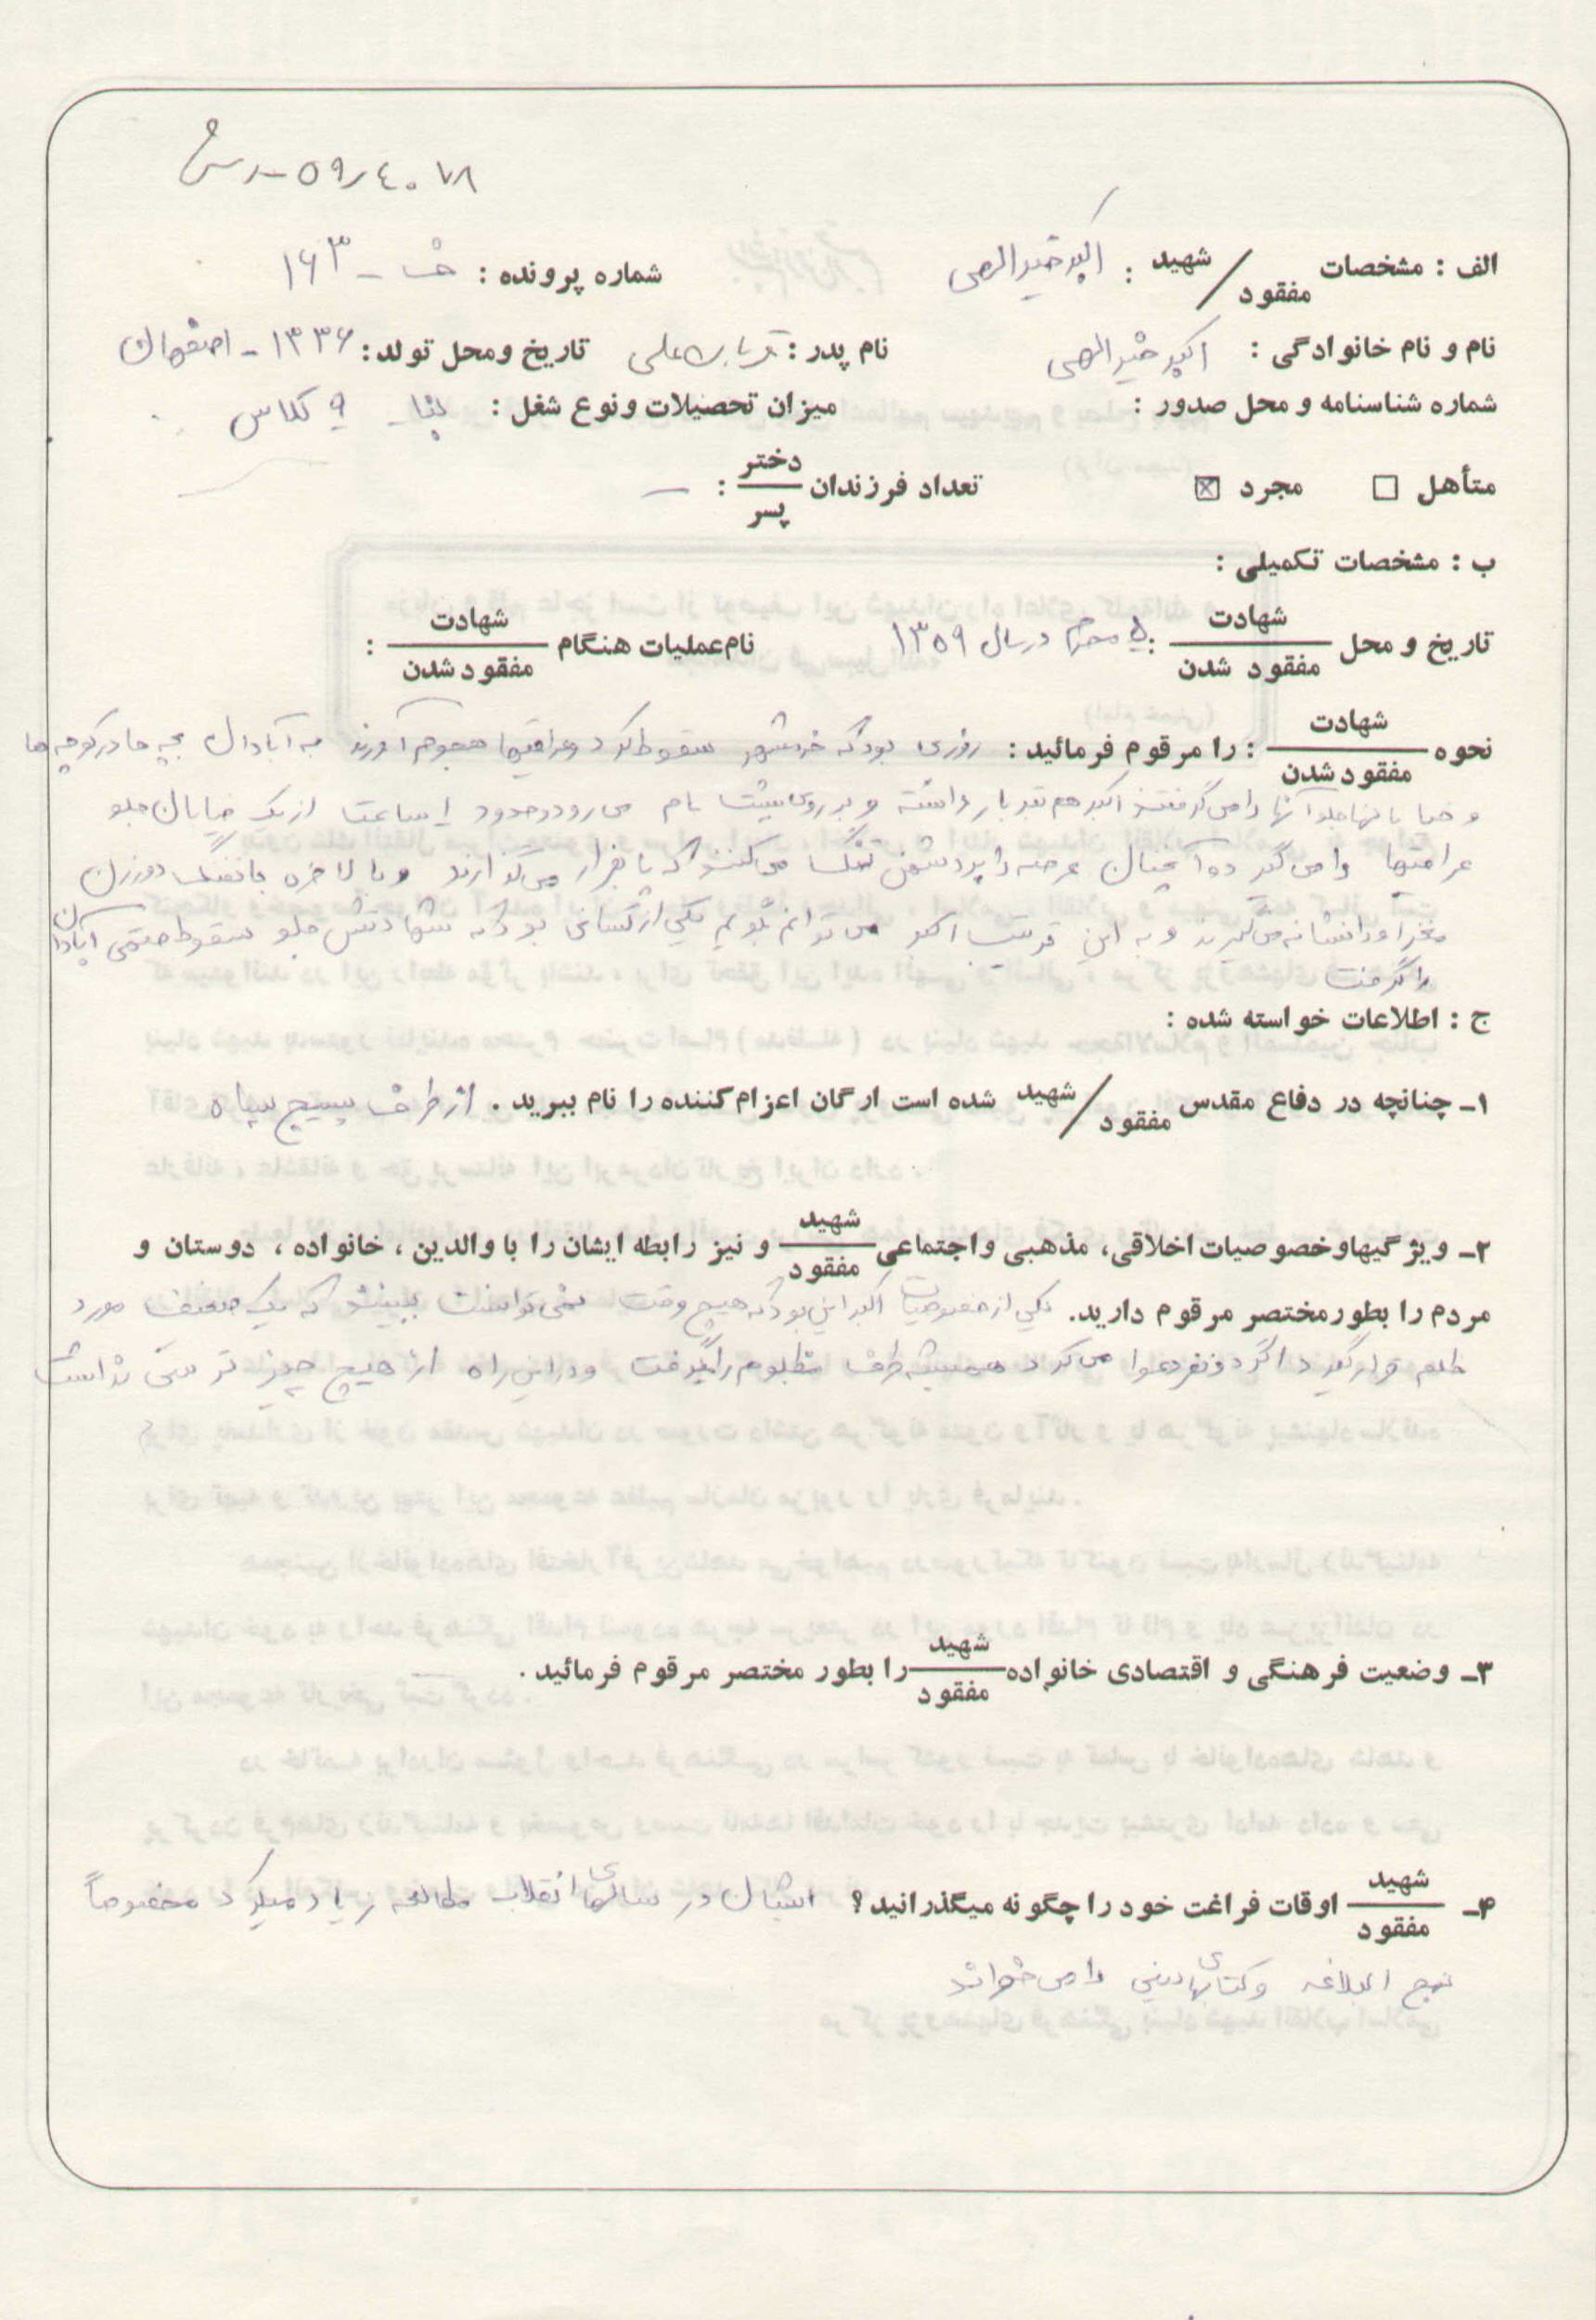 ۵۹/۴۰۷۸
الف : مشخصات شهید / مفقود : اکبر خیرالهی شماره پرونده : خ - ۱۶۳
نام و نام خانوادگی : اکبر خیرالهی نام پدر : قربانعلی تاریخ ومحل تولد : ۱۳۳۶ - اصفهان
شماره شناسنامه و محل صدور : میزان تحصیلات و نوع شغل : بنا - ۹ کلاس
متأهل ☐ مجرد ☒ تعداد فرزندان دختر / پسر : —
ب : مشخصات تکمیلی :
تاریخ و محل شهادت / مفقود شدن : ۵ محرم در سال ۱۳۵۹ نام عملیات هنگام شهادت / مفقود شدن :
نحوه شهادت / مفقود شدن : را مرقوم فرمائید : روزی بود که خرمشهر سقوط کرد و عراقیها هجوم آورند به آبادان بچه ها در کوچه ها
و خیابانها جلو آنها را می گرفتند اکبر هم تیر بار داشته و بر روی پشت بام می رود و حدود ۱ ساعت از یک خیابان جلو
عراقیها را می گیرد و آنچنان عرصه را بر دشمن تنگ می کند که پا بفرار می گذارند و بالاخره با تفنگ دورزن
مغز او را نشانه می گیرند و به این ترتیب اکبر می توانم بگویم یکی از کسانی بود که شهادتش جلو سقوط حتمی آبادان
را گرفت
ج : اطلاعات خواسته شده :
۱ـ چنانچه در دفاع مقدس شهید / مفقود شده است ارگان اعزام کننده را نام ببرید . از طرف بسیج سپاه
۲ـ ویژگیهاوخصوصیات اخلاقی، مذهبی واجتماعی شهید / مفقود و نیز رابطه ایشان را با والدین ، خانواده ، دوستان و
مردم را بطور مختصر مرقوم دارید. یکی از خصوصیات اکبر این بود که هیچ وقت نمی توانست ببیند که یک ضعیف مورد
ظلم قرار گیرد اگر دو نفر دعوا می کرد همیشه طرف مظلوم را میگرفت و در این راه از هیچ چیز ترسی نداشت
۳ـ وضعیت فرهنگی و اقتصادی خانواده شهید / مفقود را بطور مختصر مرقوم فرمائید .
۴ـ شهید / مفقود اوقات فراغت خود را چگونه میگذرانید ؟ ایشان در سالهای انقلاب مطالعه زیاد میکرد مخصوصاً
نهج البلاغه و کتابهای دینی را می خواند